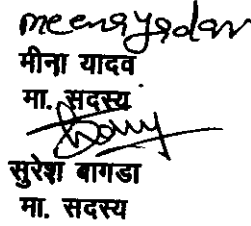 meenayadav
मीना यादव
मा. सदस्य
सुरेश बागडा
मा. सदस्य